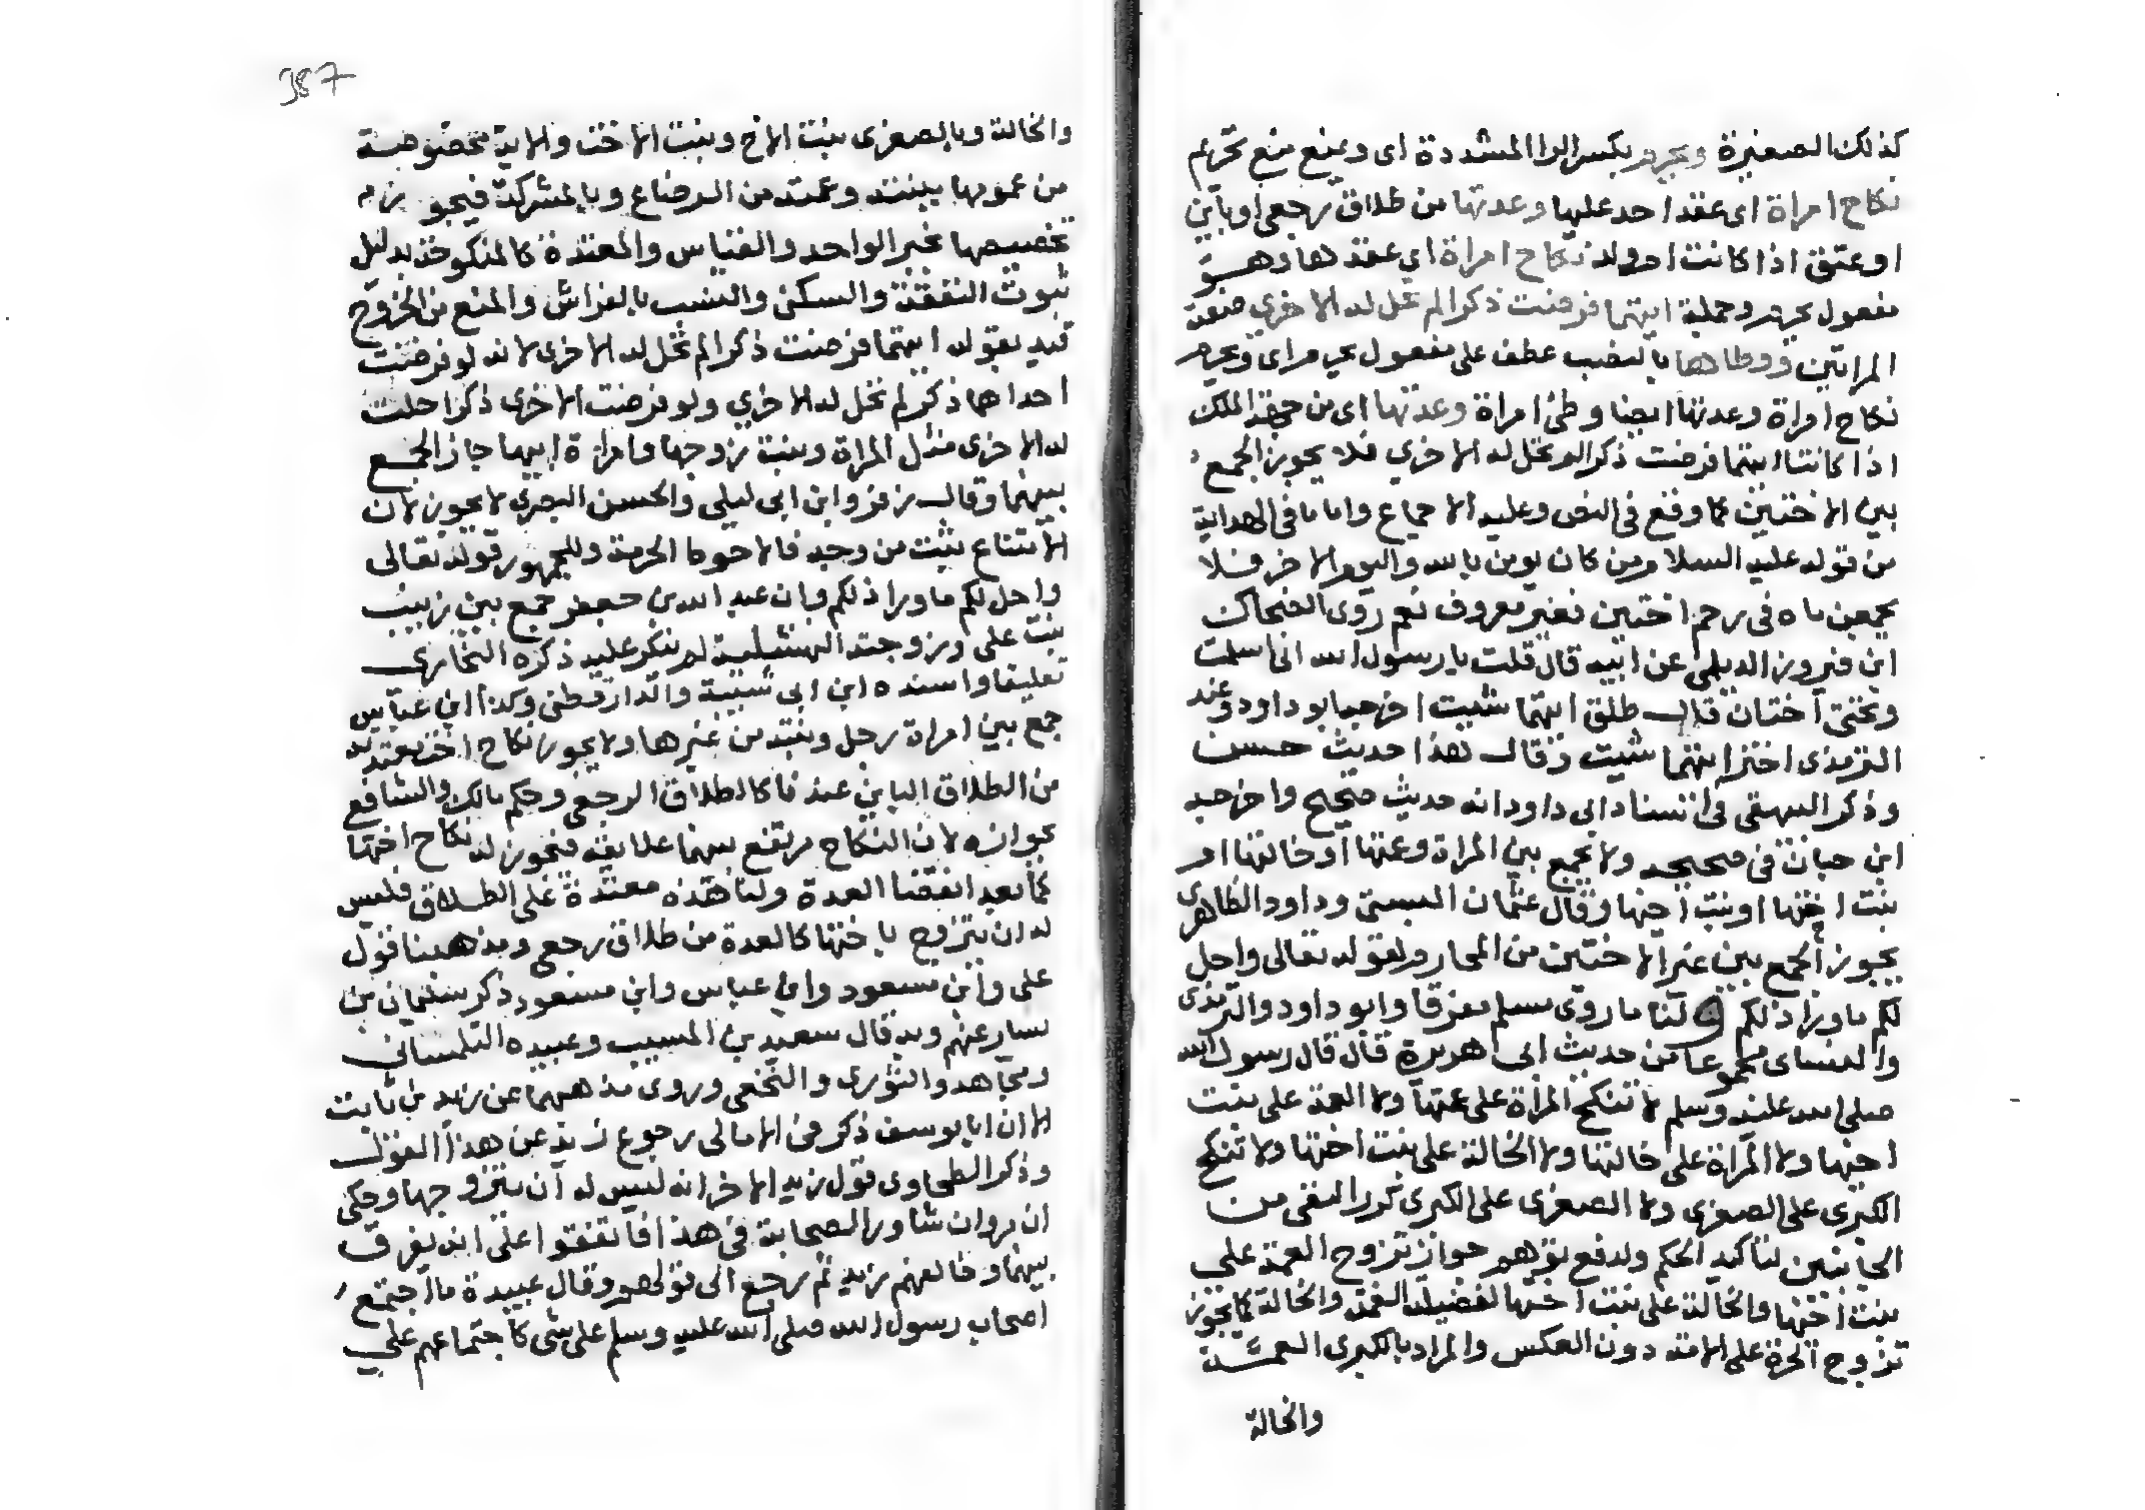 كذلك الصغيرة ويحرم بكسر الراء المشددة اى ويمنع منع تحريم
نكاح امراة اى عقد احد عليها وعدتها من طلاق رجعى او باين
او عتق اذا كانت ام ولد نكاح امراة اي عقدها وهو
مفعول يحرم وجملة ايتهما فرضت ذكرا لم تحل له الاخري صفة
المراتين ووطاها بالنصب عطف على مفعول يحرم اى ويحرم
نكاح امراة وعدتها ايضا وطئ امراة وعدتها اى من جهة الملك
اذا كانتا ايتهما فرضت ذكرا لم تحل له الاخري فلا يجوز الجمع
بين الاختين كما وقع فى النص وعليه الاجماع واما ما فى الهداية
من قوله عليه السلام من كان يومن بالله واليوم الاخر فلا
يجمعن ماه فى رحم اختين فغير معروف نعم روى الضحاك
ابن فيروز الديلمى عن ابيه قال قلت يا رسول الله انى اسلمت
وتحتى اختان قال طلق ايتهما شيت اخرجه ابو داود وعند
الترمذى اختر ايتهما شيت وقال هذا حديث حسن
وذكر البيهقى فى اسناد ابى داود انه حديث صحيح واخرجه
ابن حبان فى صحيحه ولا يجمع بين المراة وعمتها او خالتها او
بنت اختها او بنت اخيها وقال عثمان البستى وداود الظاهرى
يجوز الجمع بين غير الاختين من المحارم لقوله تعالى واحل
لكم ما ورا ذلكم ولنا ما روى مسلم مفرقا وابو داود والترمذى
والنساى مجموعا من حديث ابى هريرة قال قال رسول الله
صلى الله عليه وسلم لا تنكح المراة على عمتها ولا العمة على بنت
اخيها ولا المراة على خالتها ولا الخالة على بنت اختها ولا تنكح
الكبرى على الصغرى ولا الصغرى على الكبرى كرر النفى من
الجانبين لتاكيد الحكم ولدفع توهم جواز تزوج العمة على
بنت اخيها والخالة على بنت اختها لفضيلة العمة والخالة كما يجوز
تزوج الحرة على الامة دون العكس والمراد بالكبرى العمة
والخالة
387
والخالة وبالصغرى بنت الاخ وبنت الاخت والاية مخصوصة
من عمومها ببنته وعمته من الرضاع وبالمشركة فيجوز
تخصيصها بخبر الواحد والقياس والمعتدة كالمنكوحة بدليل
ثبوت النفقة والسكنى والنسب بالفراش والمنع من الخروج
قيد بقوله ايتهما فرضت ذكرا لم تحل له الاخرى لانه لو فرضت
احداهما ذكرا لم تحل له الاخري ولو فرضت الاخرى ذكرا حلت
له الاخرى مثل المراة وبنت زوجها وامراة ابيها جاز الجمع
بينهما وقال زفر وابن ابى ليلى والحسن البصري لا يجوز لان
الامتناع يثبت من وجه فالاحوط الحرمة وللجمهور قوله تعالى
واحل لكم ما ورا ذلكم وان عبد الله بن جعفر جمع بين زينب
بنت على وزوجته النهشلية لم ينكر عليه ذكره البخارى
تعليقا واسنده ابن ابى شيبة والدارقطنى وكذا ابن عباس
جمع بين امراة رجل وبنته من غيرها ولا يجوز نكاح اخت معتدته
من الطلاق الباين عندنا كالطلاق الرجعى وحكم مالك والشافعى
بجوازه لان النكاح مرتفع بينهما علايقه فيجوز له نكاح اختها
كما بعد انقضا العدة ولنا هذه معتدة على الطلاق فليس
له ان يتزوج باختها كالعدة من طلاق رجعى ومذهبنا قول
على وابن مسعود وابن عباس وابن مسعود ذكر سليمان بن
يسار عنهم وبه قال سعيد بن المسيب وعبيده السلمانى
ومجاهد والثورى والنخعى وروى مذهبهما عن زيد بن ثابت
الا ان ابا يوسف ذكر فى الامالى رجوع زيد عن هذا القول
وذكر الطحاوى قول زيد الاخر انه ليس له ان يتزوجها وحكى
ان مروان شاور الصحابة فى هذا فاتفقوا على انه يفرق
بينهما وخالفهم زيد ثم رجع الى قولهم وقال عبيدة ما اجتمع
اصحاب رسول الله صلى الله عليه وسلم على شى كاجتماعهم على